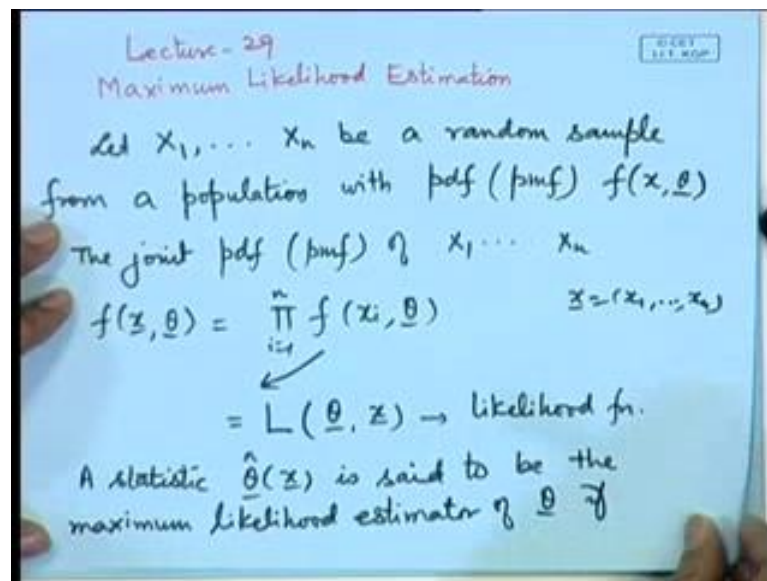 Lecture-29
© CET
I.I.T. KGP
Maximum Likelihood Estimation
Let X₁, ... Xₙ be a random sample
from a population with pdf (pmf) f(x, θ̲)
The joint pdf (pmf) of X₁ ... Xₙ
f(x̲, θ̲) = ∏ᵢ₌₁ⁿ f(xᵢ, θ̲) x̲ = (x₁, ..., xₙ)
= L(θ̲, x̲) → likelihood fn.
A statistic θ̲̂(x̲) is said to be the
maximum likelihood estimator of θ̲ if